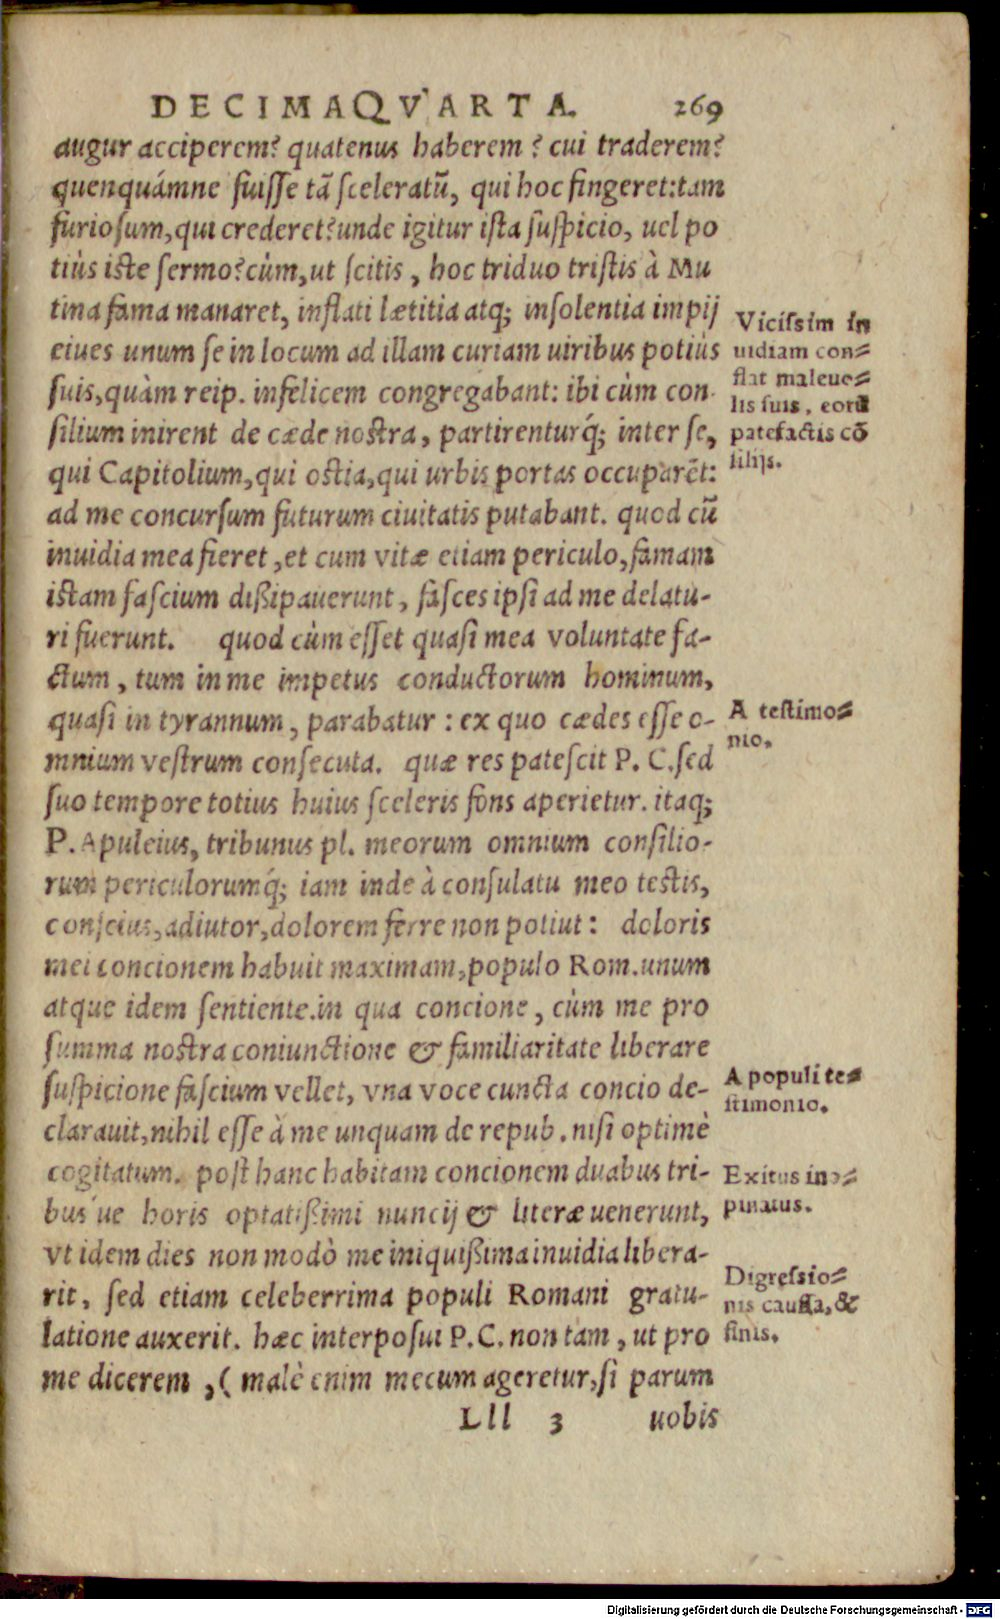 DECIMAQVARTA. 269
augur acciperem? quatenus haberem? cui traderem?
quenquámne fuisse tã sceleratũ, qui hoc fingeret: tam
furiosum, qui crederet? unde igitur ista suspicio, uel po
tiùs iste sermo? cùm, ut scitis, hoc triduo tristis à Mu
tina fama manaret, inflati lætitia atq; insolentia impij
ciues unum se in locum ad illam curiam uiribus potiùs
suis, quàm reip. infelicem congregabant: ibi cùm con
silium inirent de cæde nostra, partirenturq́; inter se,
qui Capitolium, qui ostia, qui urbis portas occuparẽt:
ad me concursum futurum ciuitatis putabant. quod cũ
inuidia mea fieret, et cum vitæ etiam periculo, famam
istam fascium dißipauerunt, fasces ipsi ad me delatu-
ri fuerunt. quod cùm esset quasi mea voluntate fa-
ctum, tum in me impetus conductorum hominum,
quasi in tyrannum, parabatur: ex quo cædes esse o-
mnium vestrum consecuta. quæ res patescit P. C. sed
suo tempore totius huius sceleris fons aperietur. itaq;
P. Apuleius, tribunus pl. meorum omnium consilio-
rum periculorumq́; iam inde à consulatu meo testis,
conscius, adiutor, dolorem ferre non potiut: doloris
mei concionem habuit maximam, populo Rom. unum
atque idem sentiente. in qua concione, cùm me pro
summa nostra coniunctione & familiaritate liberare
suspicione fascium vellet, vna voce cuncta concio de-
clarauit, nihil esse à me unquam de repub. nisi optimè
cogitatum. post hanc habitam concionem duabus tri-
bus ue horis optatißimi nuncij & literæ uenerunt,
vt idem dies non modò me iniquißima inuidia libera-
rit, sed etiam celeberrima populi Romani gratu-
latione auxerit. hæc interposui P. C. non tam, ut pro
me dicerem, (malè enim mecum ageretur, si parum
Lll 3 uobis
Vicissim in
uidiam con=
flat maleuo=
lis suis, eorũ
patefactis cõ
silijs.
A testimo=
nio.
A populi te=
stimonio.
Exitus ino=
pinatus.
Digressio=
nis caussa, &
finis.
Digitalisierung gefördert durch die Deutsche Forschungsgemeinschaft - DFG